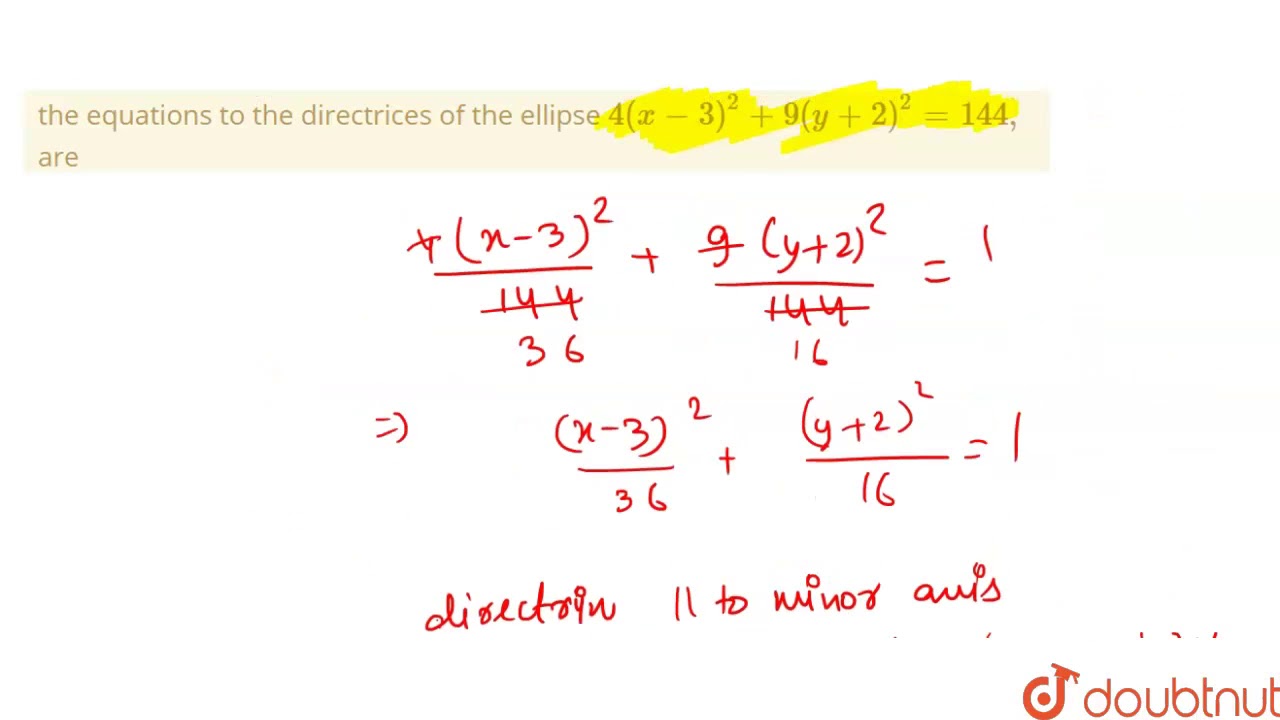 the equations to the directrices of the ellipse 4(x − 3)² + 9(y + 2)² = 144,
are
4(x-3)² + 9(y+2)² = 1
144 144
36 16
=> (x-3)² + (y+2)² = 1
36 16
directrix || to minor axis
doubtnut